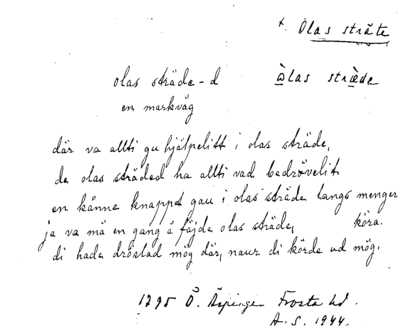 t. Olas sträte
olas sträde-d òlas stræ̀de
en markväg
där va allti gu hjälpelitt i olas sträde,
de olas sträded ha allti vad bedrövelit
en kånne knappt gau i olas sträde langs menger
ja va mä en gang å fåjde olas sträde, köra.
di hade dröslad mög där, naur di körde ud mög.
1795 Ö. Äspinge Frosta hd.
A. S. 1944.